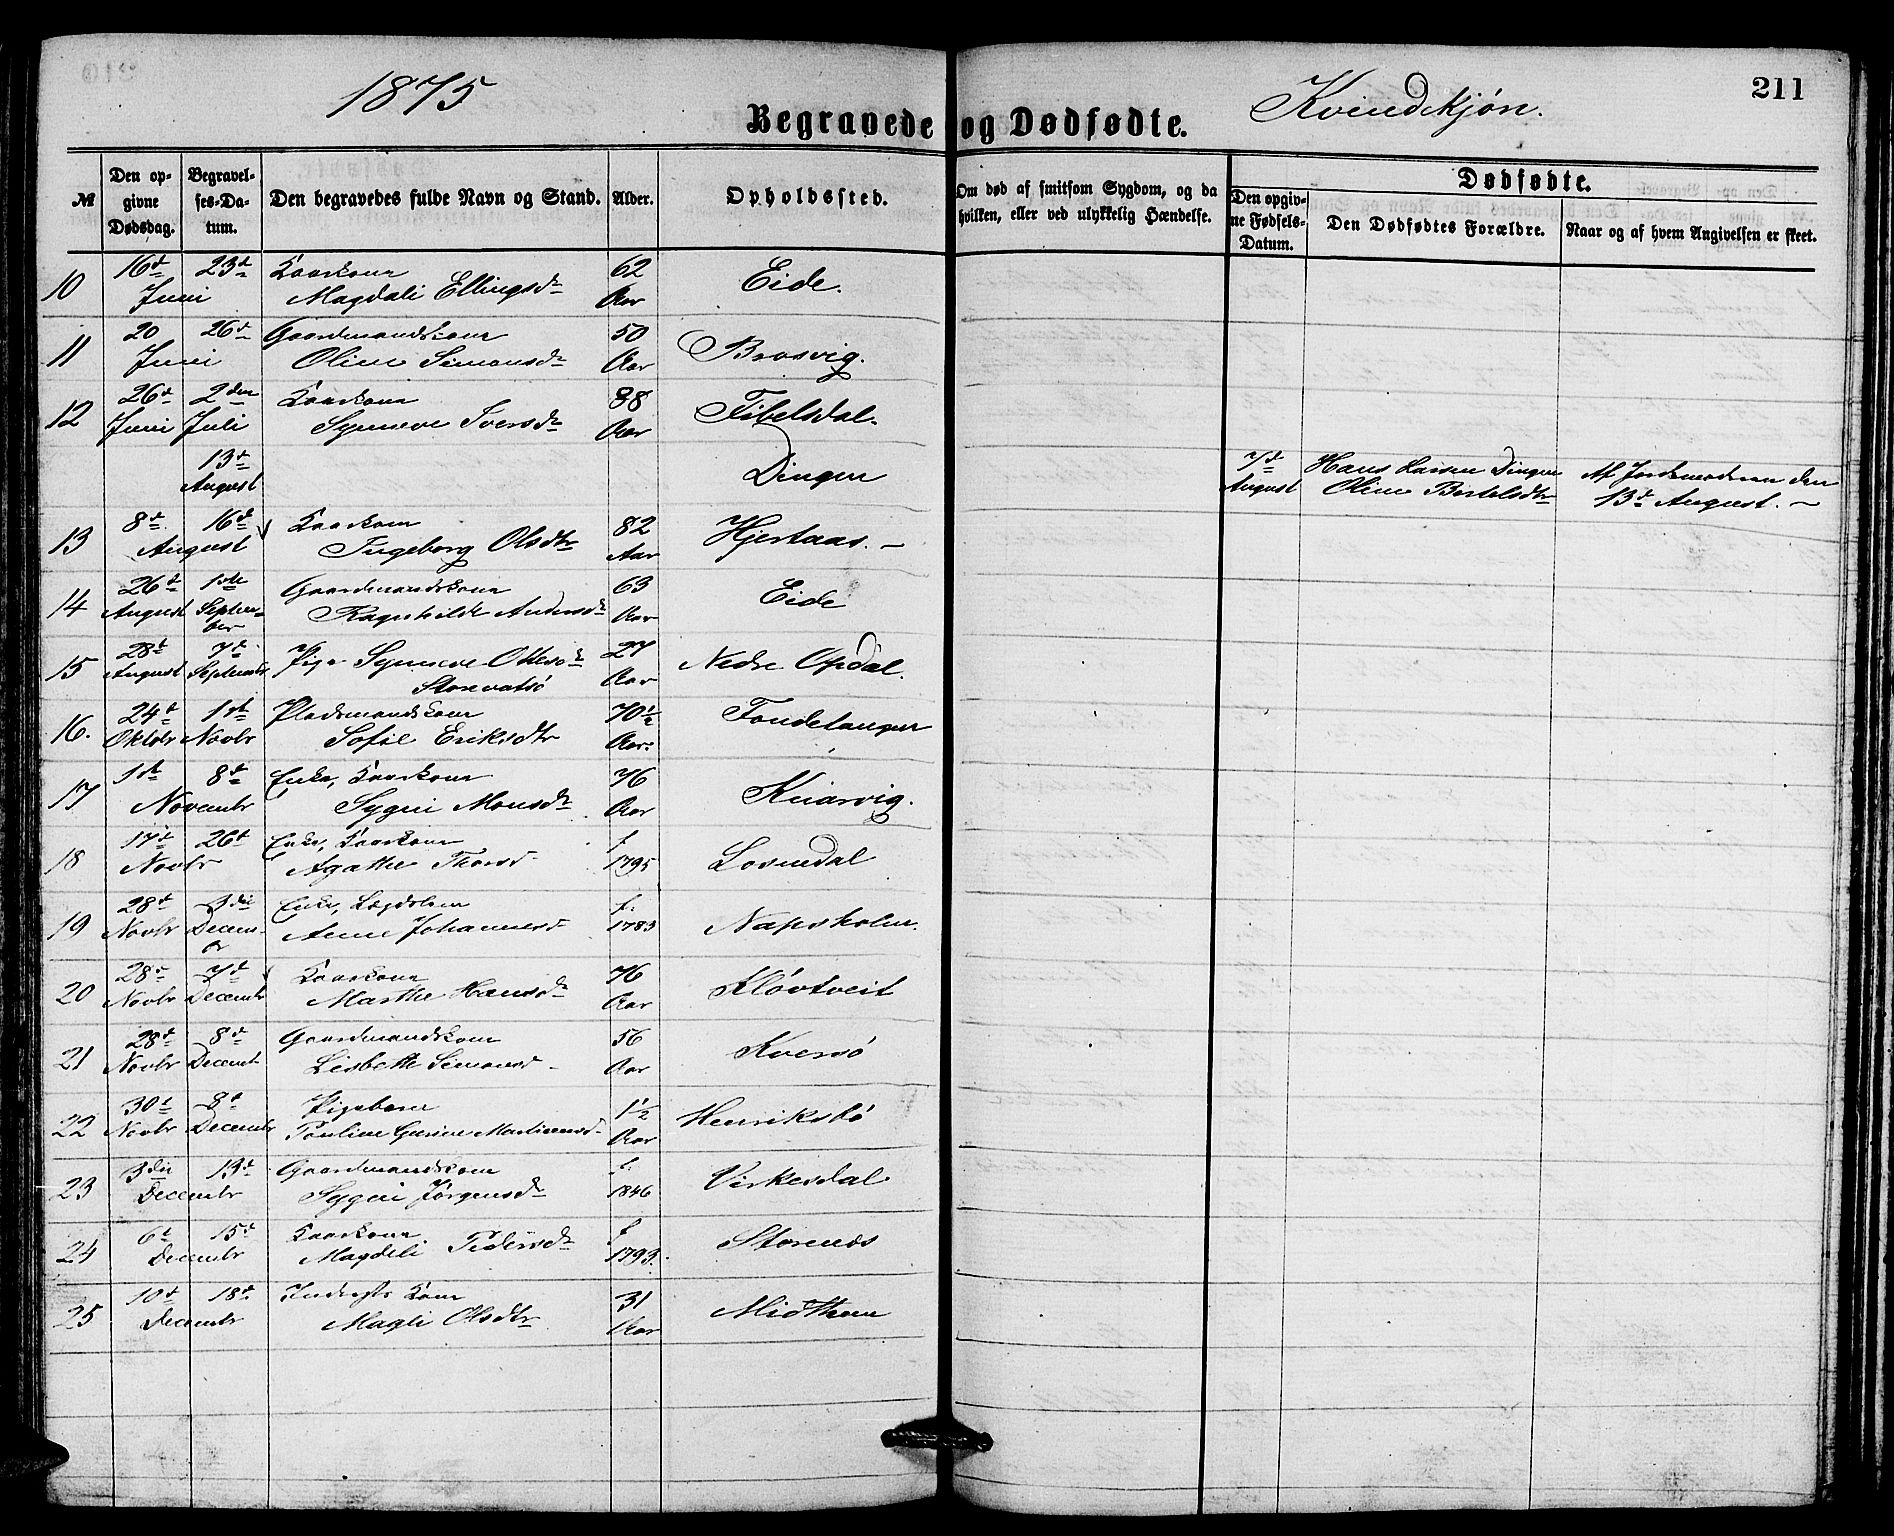 1875
Begravede og Dødfødte.
Kvindekjøn.
211
№
Den opgivne Dødsdag.
Begravelses-Datum.
Den begravedes fulde Navn og Stand.
Alder.
Opholdssted.
Om død af smitsom Sygdom, og da hvilken, eller ved ulykkelig Hændelse.
Dødfødte.
Den opgivne Fødsels-Datum.
Den Dødfødtes Forældre.
Naar og af hvem Angivelsen er skeet.
10 16d Juni 23d Kaarkone Magdali Ellingsdr 62 Aar Eide.
11 20 Juni 26d Gaardmandskone Oline Simonsdr 50 Aar Brosvig.
12 26d Juni 2den Juli Kaarkone Synneve Iversdr 88 Aar Fibelsdal.
13d August Dingen 7d August Hans Larsen Dingen Oline Bertelsdtr Af Jordemoderen den 13d August. –
13 8d 16d August Kaarkone Ingeborg Olsdtr 82 Aar Hjertaas. –
14 26d August 1ste September Gaardmandskone Ragnhilde Andersdr 63 Aar Eide
15 28d August 7d Septembr Pige Synneve Ottesdr Storevatsø 27 Aar Nedre Opdal.
16. 24d Oktobr 1ste Novbr Pladsmandskone Sofie Eriksdtr 70½ Aar: Fondetangen
17 1ste 8d Novembr Enke, Kaarkone Sygni Monsdr 76 Aar Knarvig.
18 17d 26d Novbr Enke, Kaarkone Agathe Thorsd f 1795 Losnedal
19 28d Novbr 3die December Enke, Lægdslem Anne Johannesd f. 1783 Napsholm.
20 28d Novbr 7d Decembr Kaarkone Marthe Hansdr 76 Aar Kløvtveit
21 28d Novbr 8d Decembr Gaardmandskone Lisbeth Simonsd 56 Aar Kversø
22 30d Novbr 8d Decembr Pigebarn Pauline Gurine Martinusd. 1½ Aar Henriksbø
23 3die 13d Decembr Gaardmandskone Sygni Jørgensdr f. 1846 Virkesdal
24 6d 15d Decembr Kaarkone. Magdeli Pedersdr f 1793. Storenes
25 10d 18d Decembr Indersts Kone Magli Olsdtr 31 Aar Midthun